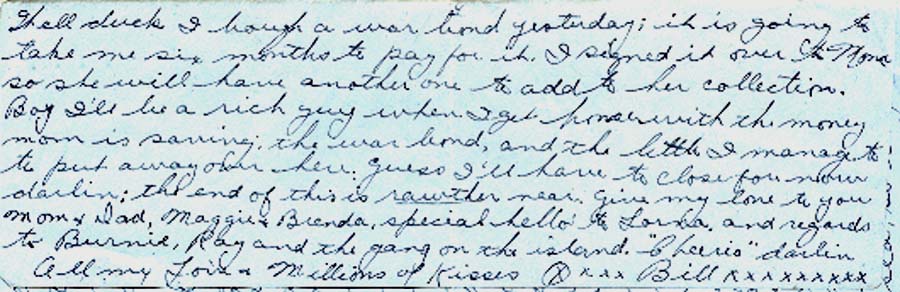 Well duck I bough a war bond yesterday; it is going to
take me six months to pay for it. I signed it over to Mom
so she will have another one to add to her collection.
Boy I'll be a rich guy when I get home with the money
mom is saving; the war bond, and the little I manage to
to put away over here. Guess I'll have to close for now
darlin; the end of this is rawther near. Give my love to you
Mom & Dad, Maggie & Brenda, special hello to Lorna, and regards
to Burnie, Ray and the gang on the island. "Cheerio" darlin
All my Love & Millions of Kisses Ⓧ x x x Bill x x x x x x x x x